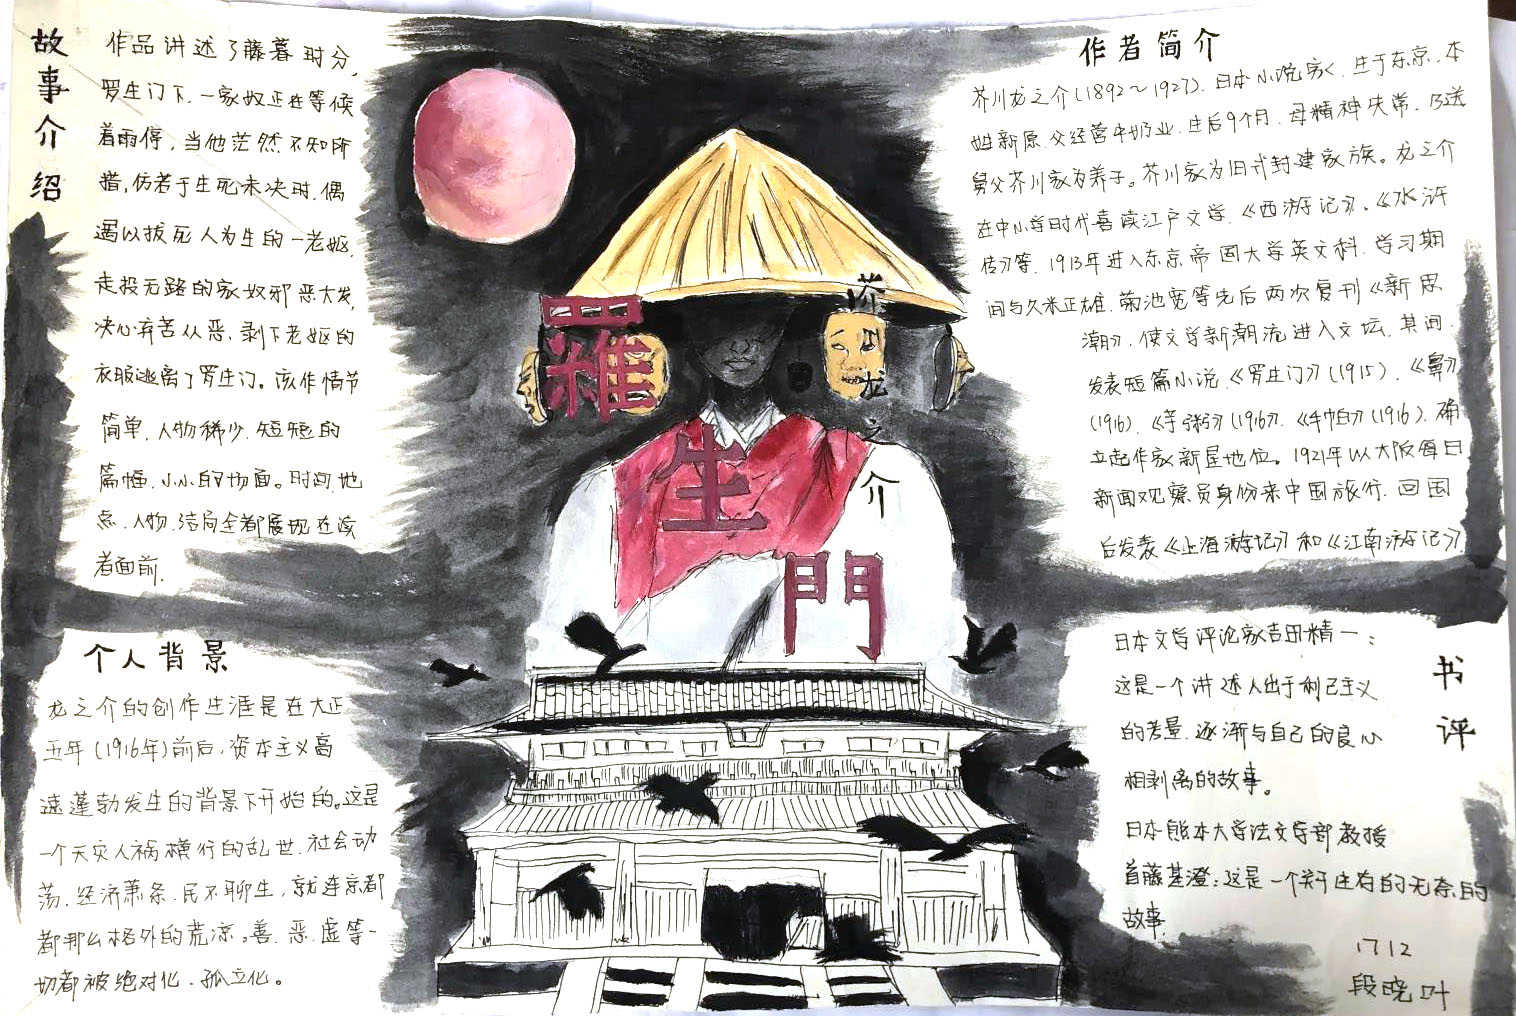 故事介绍
作品讲述了藤暮时分,
罗生门下.一家奴正在等候
着雨停,当他茫然不知所
措,仿若于生死未决时.偶
遇以拔死人为生的一老妪.
走投无路的家奴邪恶大发,
决心弃苦从恶.剥下老妪的
衣服逃离了罗生门。该作情节
简单.人物稀少.短短的
篇幅.小小的场面。时间.地
点.人物.结局全都展现在读
者面前.
个人背景
龙之介的创作生涯是在大正
五年(1916年)前后,资本主义高
速蓬勃发生的背景下开始的。这是
一个天灾人祸横行的乱世.社会动
荡.经济萧条.民不聊生,就连京都
都那么格外的荒凉。善.恶.虚等一
切都被绝对化.孤立化。
羅生門
芥川龙之介
作者简介
芥川龙之介(1892~1927).日本小说家.生于东京.本
姓新原.父经营牛奶业.生后9个月.母精神失常.乃送
舅父芥川家为养子。芥川家为旧式封建家族。龙之介
在中小学时代喜读江户文学.《西游记》.《水浒
传》等.1913年进入东京帝国大学英文科.学习期
间与久米正雄.菊池宽等先后两次复刊《新思
潮》.使文学新潮流进入文坛.其间.
发表短篇小说《罗生门》(1915).《鼻》
(1916).《芋粥》(1916).《手帕》(1916).确
立起作家新星地位。1921年以大阪每日
新闻观察员身份来中国旅行.回国
后发表《上海游记》和《江南游记》
书评
日本文学评论家吉田精一:
这是一个讲述人出于利己主义
的考量.逐渐与自己的良心
相剥离的故事。
日本熊本大学法文学部教授
首藤基澄:这是一个关于生存的无奈的
故事.
1712
段晓叶